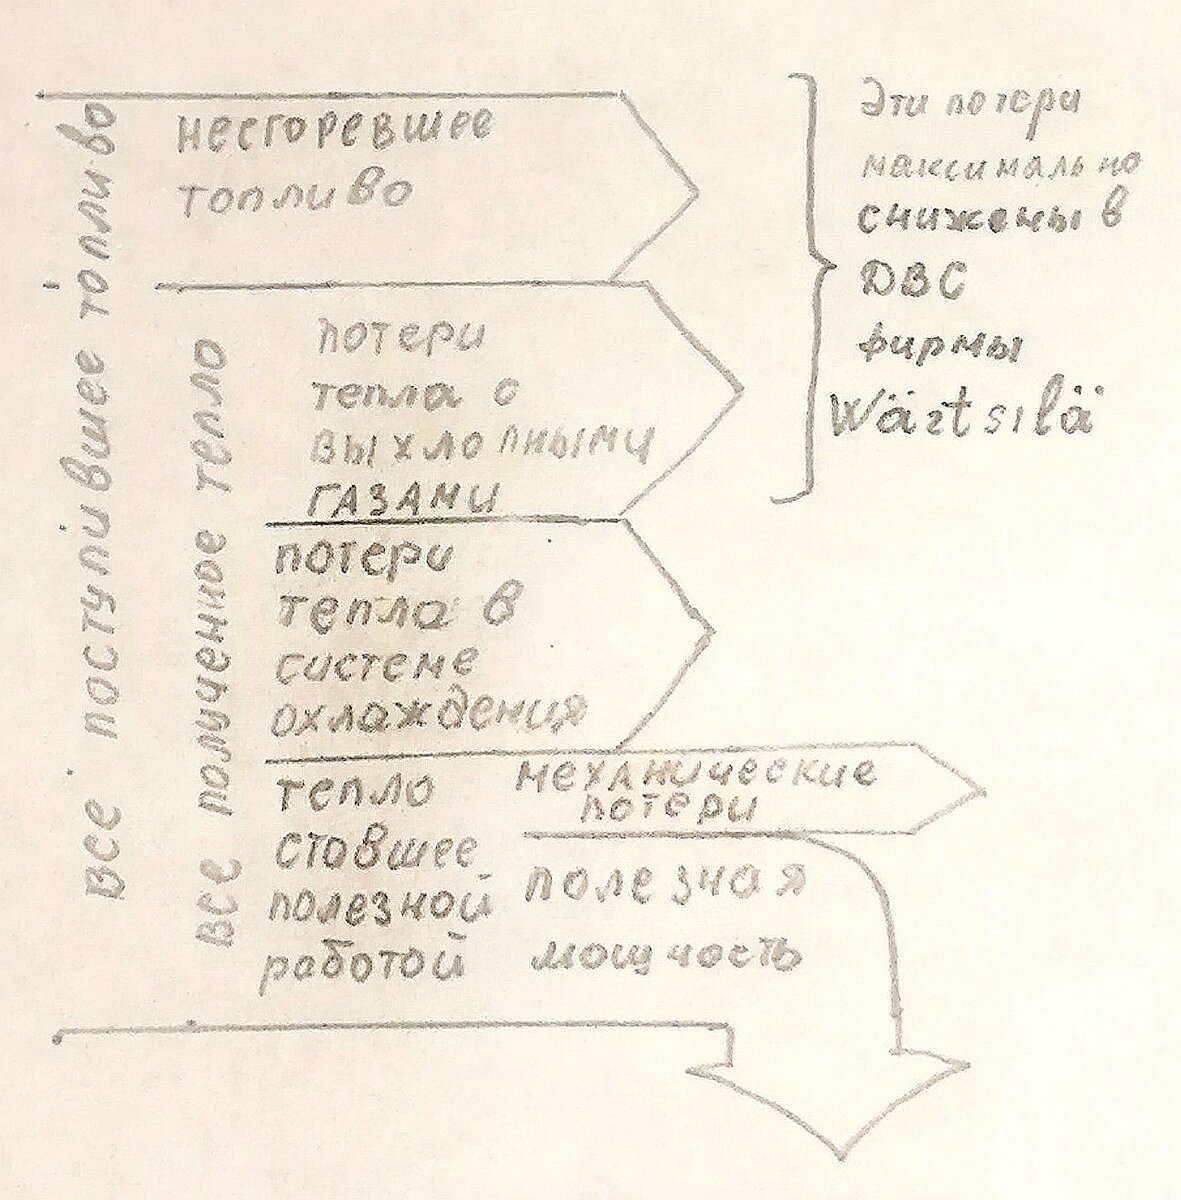 все поступившее топливо
несгоревшее
топливо
Эти потери
максимально
снижены в
ДВС
фирмы
Wärtsilä
все полученное тепло
потери
тепла с
выхлопными
газами
потери
тепла в
системе
охлаждения
тепло
ставшее
полезной
работой
механические
потери
полезная
мощность